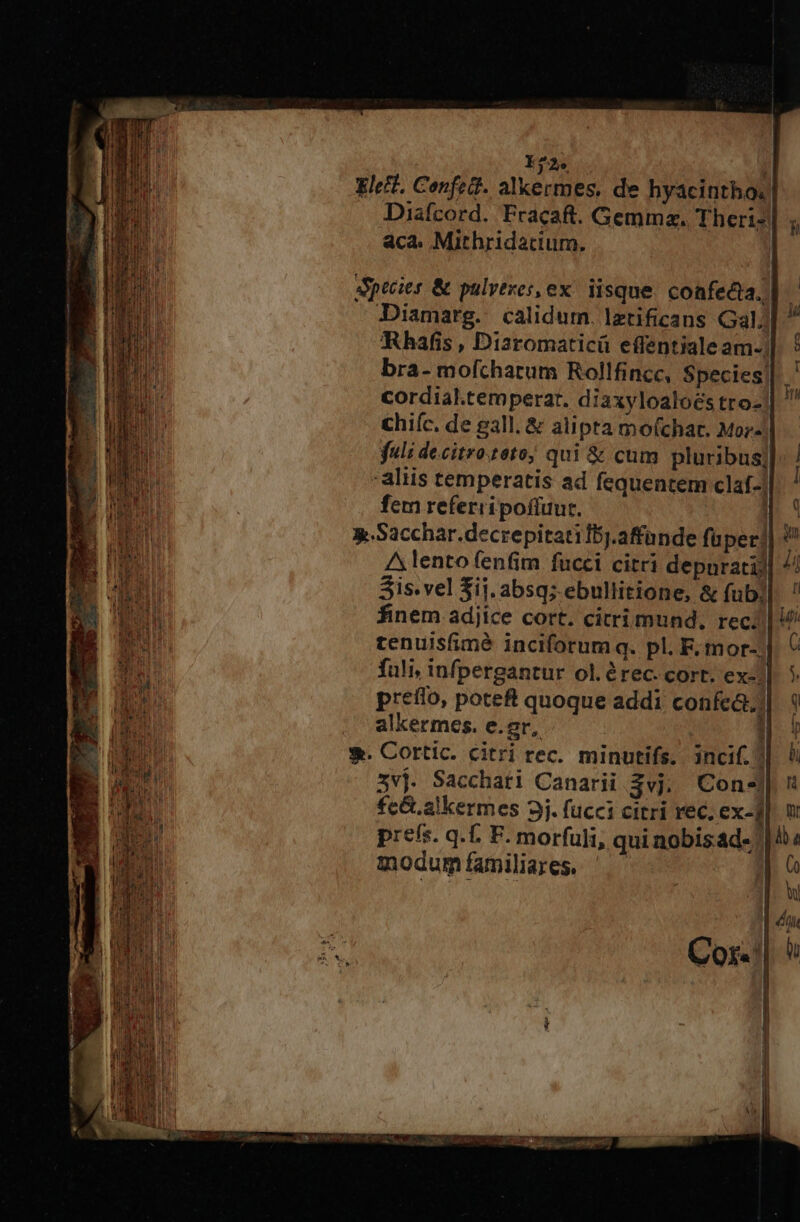 152.
Elect. Confect. alkermes. de hyacintho.
Diaſcord. Fracaſt. Gemmæ. Theri-
aca. Mithridatium.
Species & pulveres, ex iisque confecta.
Diamarg. calidum. lætificans Gal.
Rhaſis, Diaromaticū eſſentiale am-
bra- moſchatum Rollfincc, Species
cordial.temperat. diaxyloaloës tro-
chiſc. de gall. & alipta moſchat. Mor-
ſuli de citro toto, qui & cum pluribus
aliis temperatis ad ſequentem claſ-
ſem referri poſſuut.
℞. Sacchar. decrepitati ℔j. affunde ſuper
△ lento ſenſim ſucci citri depurati
ʒis. vel ℥ij. absq; ebullitione, & ſub
finem adjice cort. citri mund. rec.
tenuisſimè inciſorum q. pl. F. mor-
ſuli, inſpergantur ol. è rec. cort. ex-
preſſo, poteſt quoque addi confect.
alkermes. e. gr.
℞. Cortic. citri rec. minutiſs. inciſ.
ʒvj. Sacchari Canarii ℥vj. Con-
fect. alkermes ℈j. ſucci citri rec. ex-
preſs. q. ſ. F. morſuli, qui nobis ad-
modum familiares.
Cor-